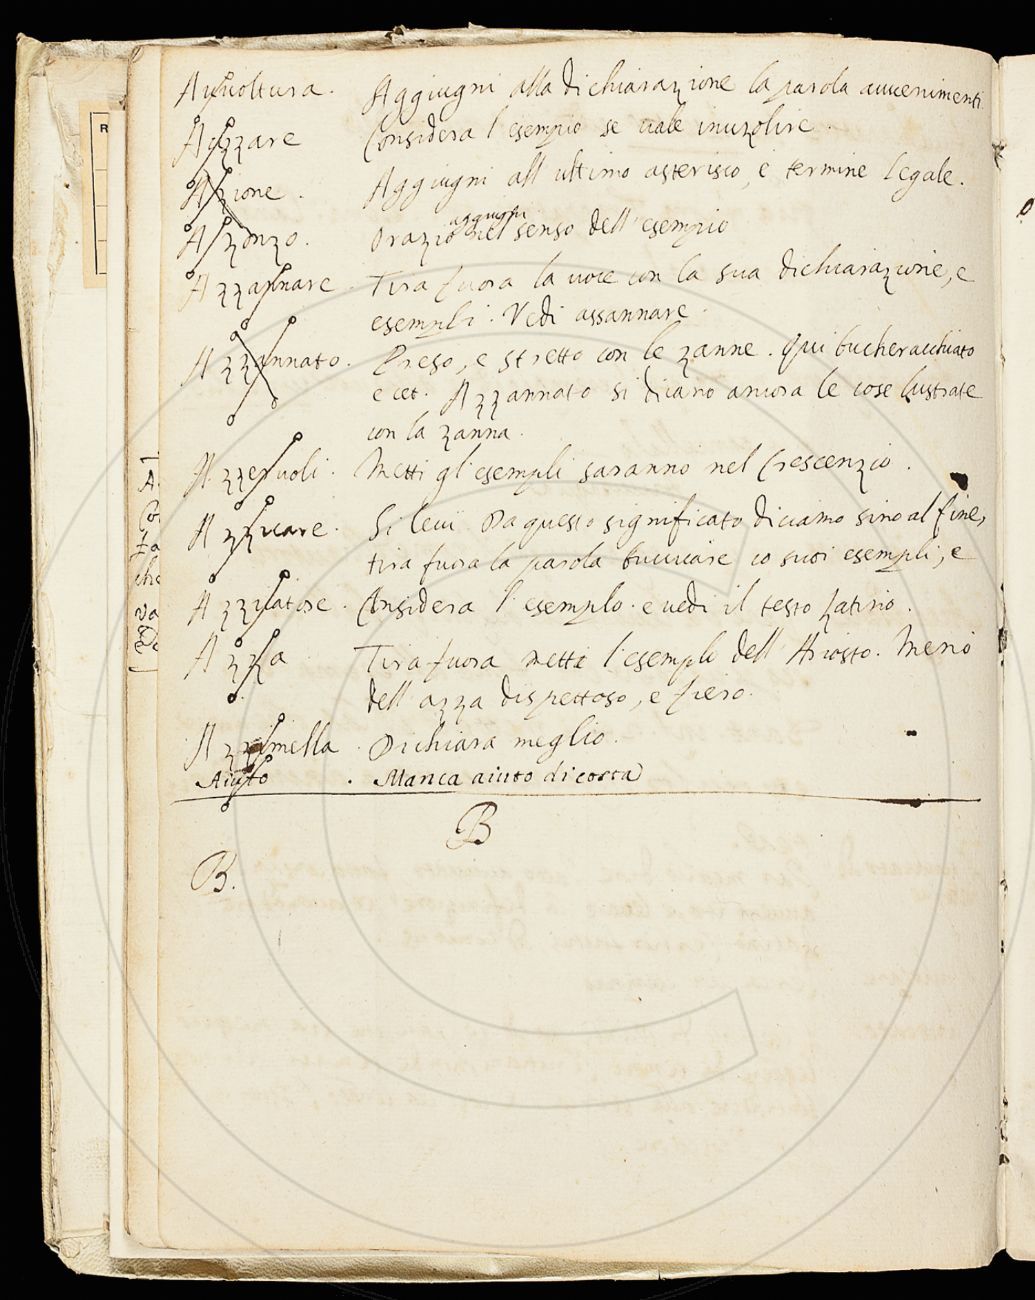 Auuoltura. Aggiugni alla dichiarazione la parola auuenimenti
Azzare Considera l'esempio se uale inuzolire.
Azione. Aggiugni all'ultimo asterisco, è termine legale.
aggiugni
Azonzo. Orazio nel senso dell'esempio
Azzannare. Tira fuora la uoce con la sua dichiarazione, e
esempli. Vedi assannare.
Azzannato. Preso, e stretto con le zanne. Qui bucheracchiato
e cet. Azzannato si dicano ancora le cose lustrate
con la zanna.
Azzeruoli. Metti gl'esempli saranno nel Crescenzio.
Azzicare. Si leui Da questo significato diciamo sino al fine,
tira fuora la parola bucicare co suoi esempli, e
Azzilatore. Considera l'esemplo. e uedi il testo Latino.
Azza Tira fuora metti l'esemplo dell'Ariosto. Menò
dell'azza dispettoso, e fiero.
Azzimella. Dichiara meglio.
Aiuto. Manca aiuto di costa
B
B.